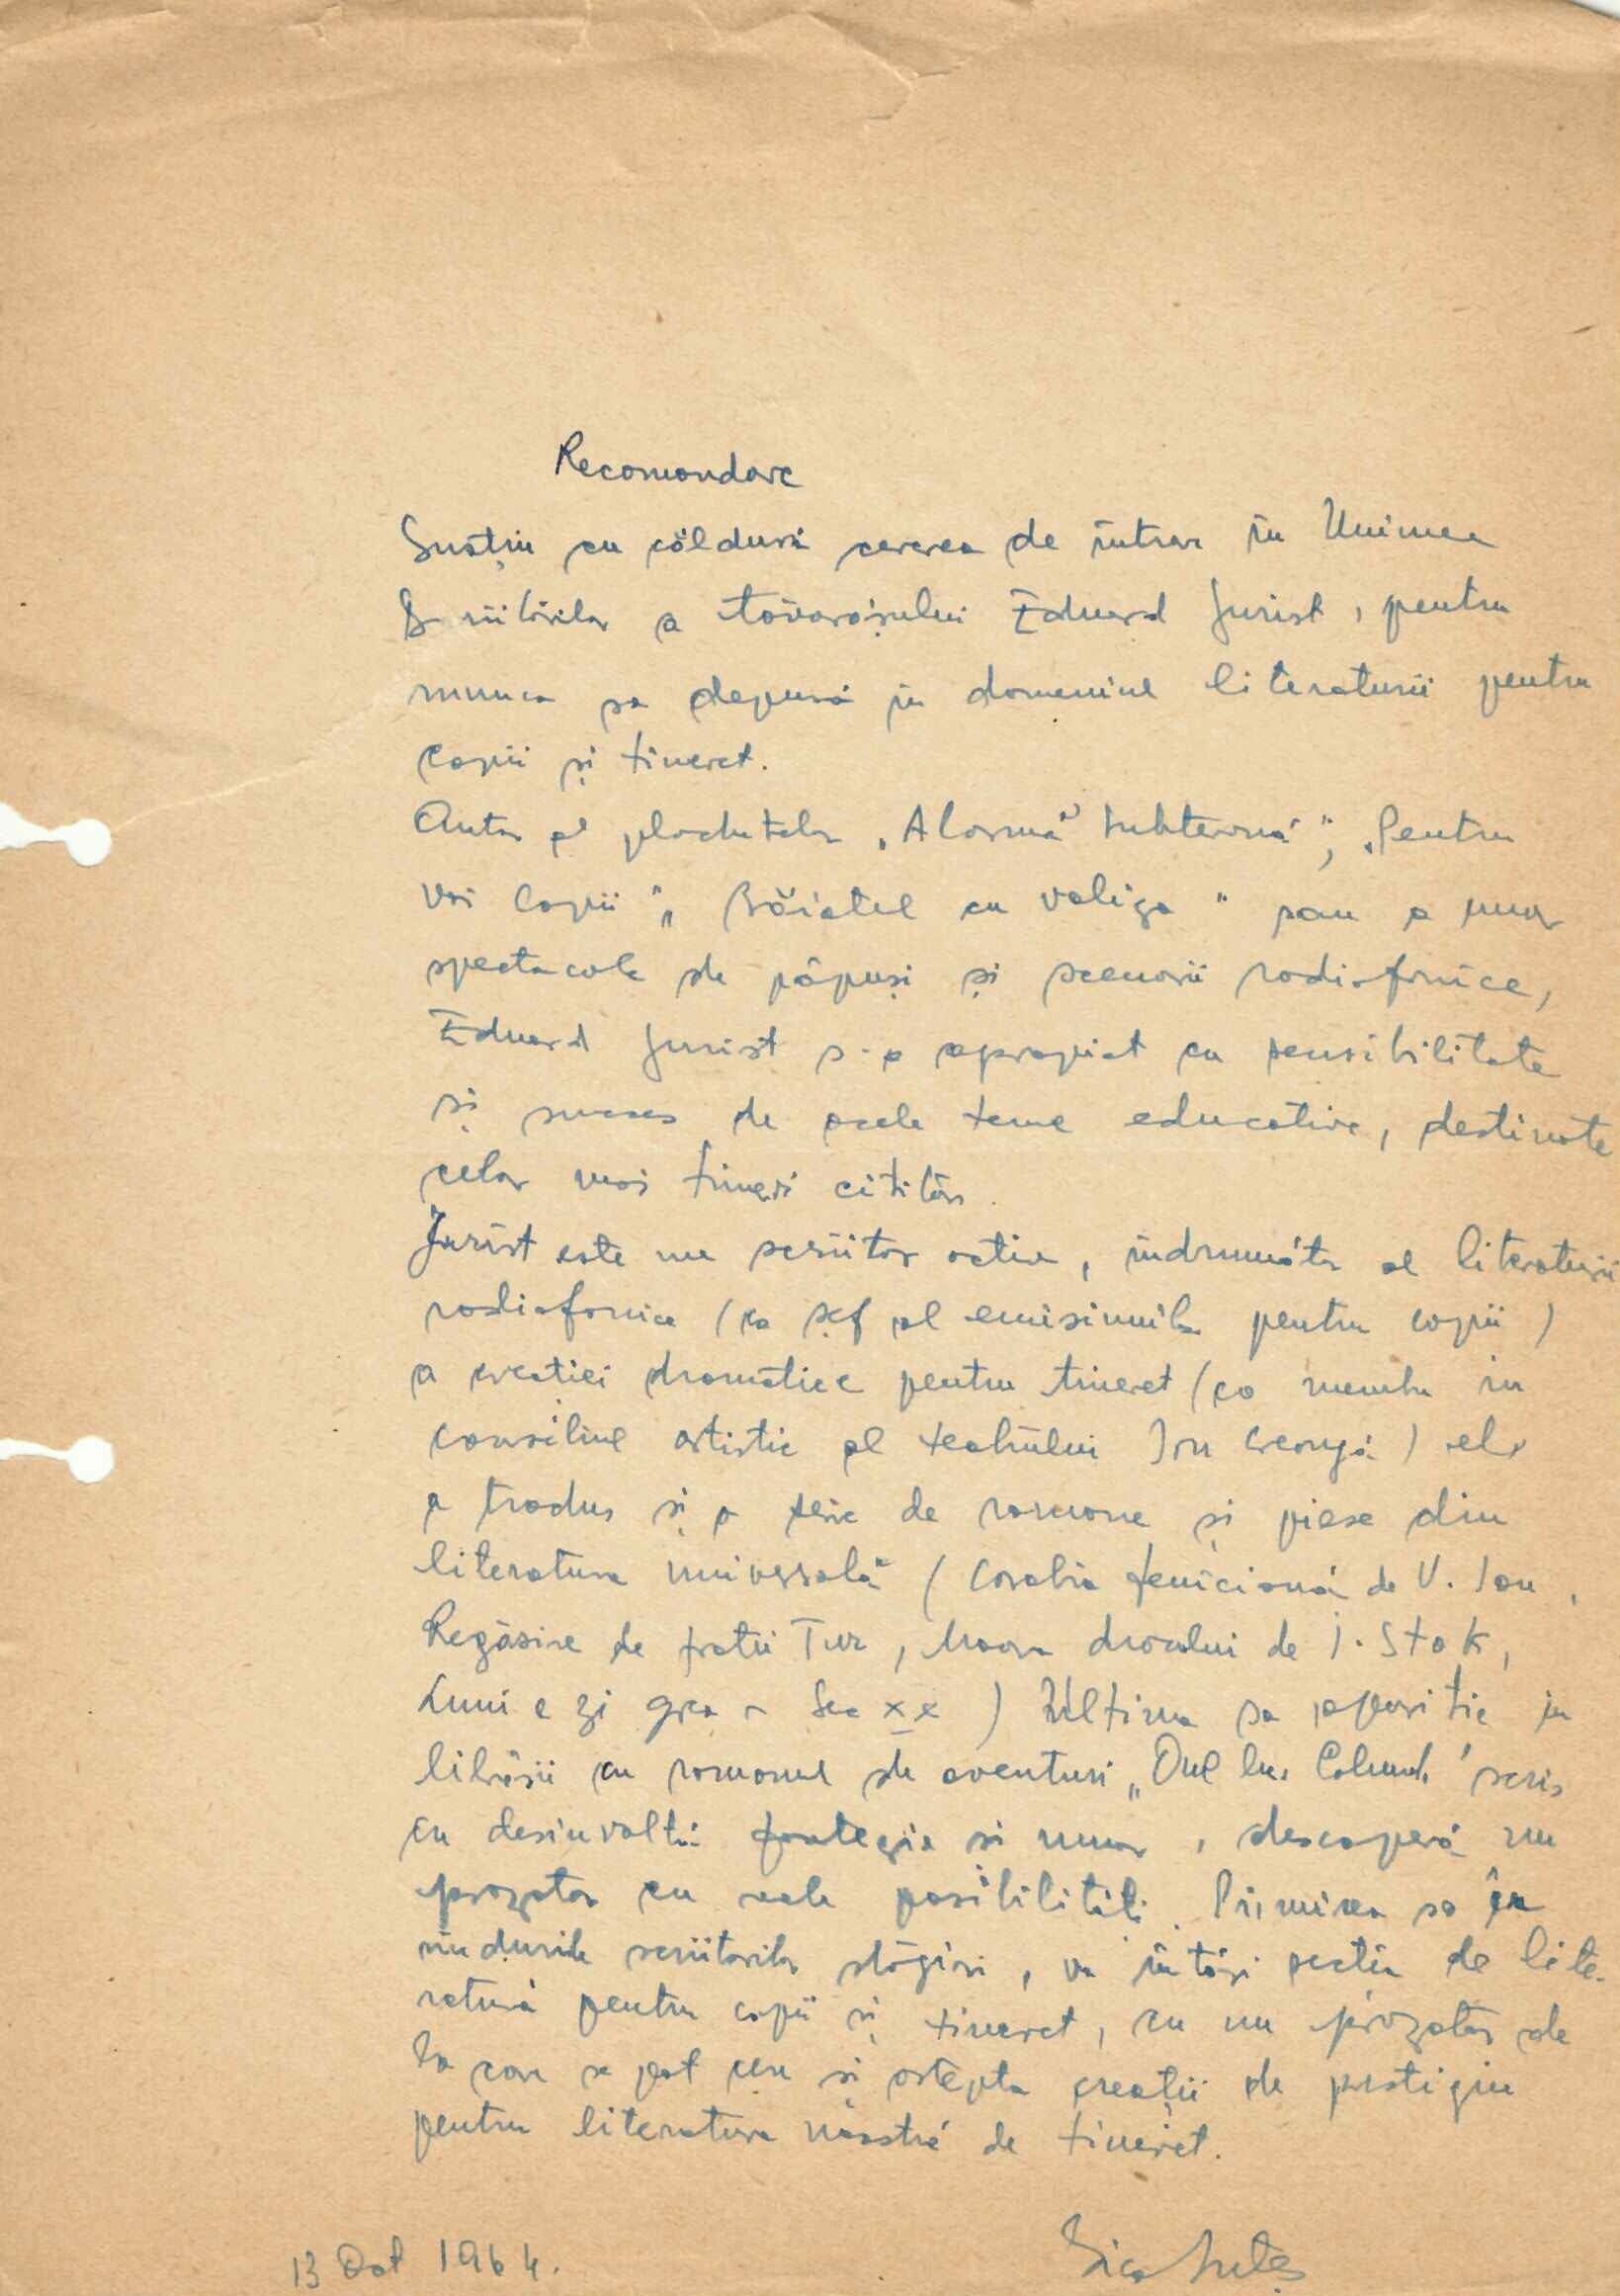 Recomandare
Susțin cu căldură cererea de intrare în Uniunea
Scriitorilor a tovarășului Eduard Jurist, pentru
munca sa depusă în domeniul literaturii pentru
copii și tineret.
Autor al plachetelor „Alarmă subterană”, „Pentru
voi copii” „Băiatul cu valiza” sau a unor
spectacole de păpuși și scenarii radiofonice,
Eduard Jurist s-a apropiat cu sensibilitate
și succes de acele teme educative, destinate
celor mai tineri cititori.
Jurist este un scriitor activ, îndrumător al literaturii
radiofonice (ca șef al emisiunilor pentru copii)
a creației dramatice pentru tineret (ca membru în
consiliul artistic al teatrului Ion Creangă) el
a tradus și o serie de romane și piese din
literatura universală (Corabia feniciană de V. Ian,
Regăsire de frații Tur, Moara dracului de I. Stok,
Luni e zi grea - Sec XX) Ultima sa apariție în
librării cu romanul de aventuri „Oul lui Columb” scris
cu desinvoltă fantezie și umor, descoperă un
prozator cu reale posibilități. Primirea sa în
rîndurile scriitorilor stagiari, va întări secția de lite-
ratură pentru copii și tineret, cu un prozator de
la care se pot cere și aștepta creații de prestigiu
pentru literatura noastră de tineret.
13 Oct 1964.